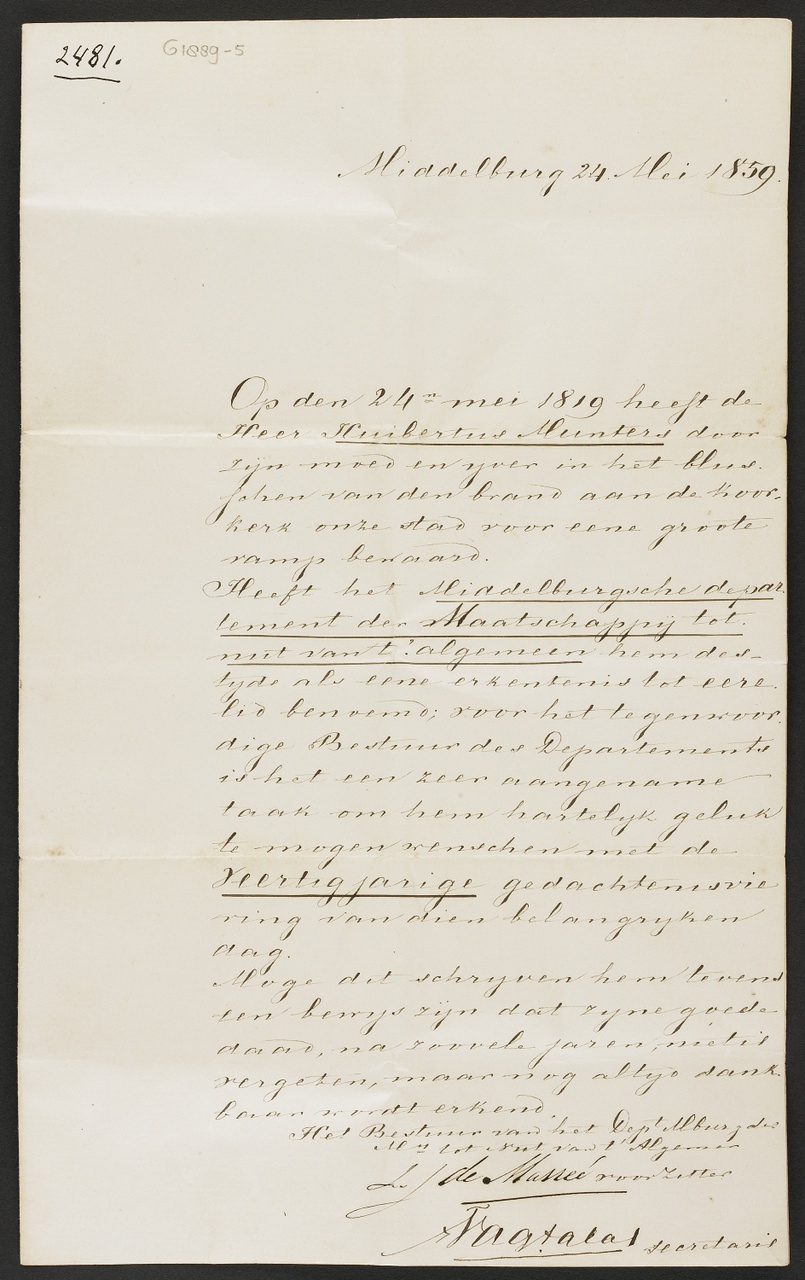 2481.
G1889-5
Middelburg 24 Mei 1859.
Op den 24n mei 1819 heeft de
Heer Huibertus Munters door
zijn moed en yver in het blus-
schen van den brand aan de Koor-
kerk onze stad voor eene groote
ramp bewaard.
Heeft het Middelburgsche depar
tement der Maatschappij tot
nut van t' algemeen hem des-
tyds als eene erkentenis tot eere
lid benoemd; voor het tegenwoor
dige Bestuur des Departements
is het een zeer aangename
taak om hem hartelyk geluk
te mogen wenschen met de
Veertigjarige gedachtenisvie
ring van dien belangryken
dag.
Moge dit schryven hem tevens
een bewys zyn dat zyne goede
daad, na zoovele jaren, niet is
vergeten, maar nog altyd dank
baar wordt erkend.
Het Bestuur van het Dept Mburg der
Mij tot Nut van t' Algemeen
L J de voorzitter
secretaris